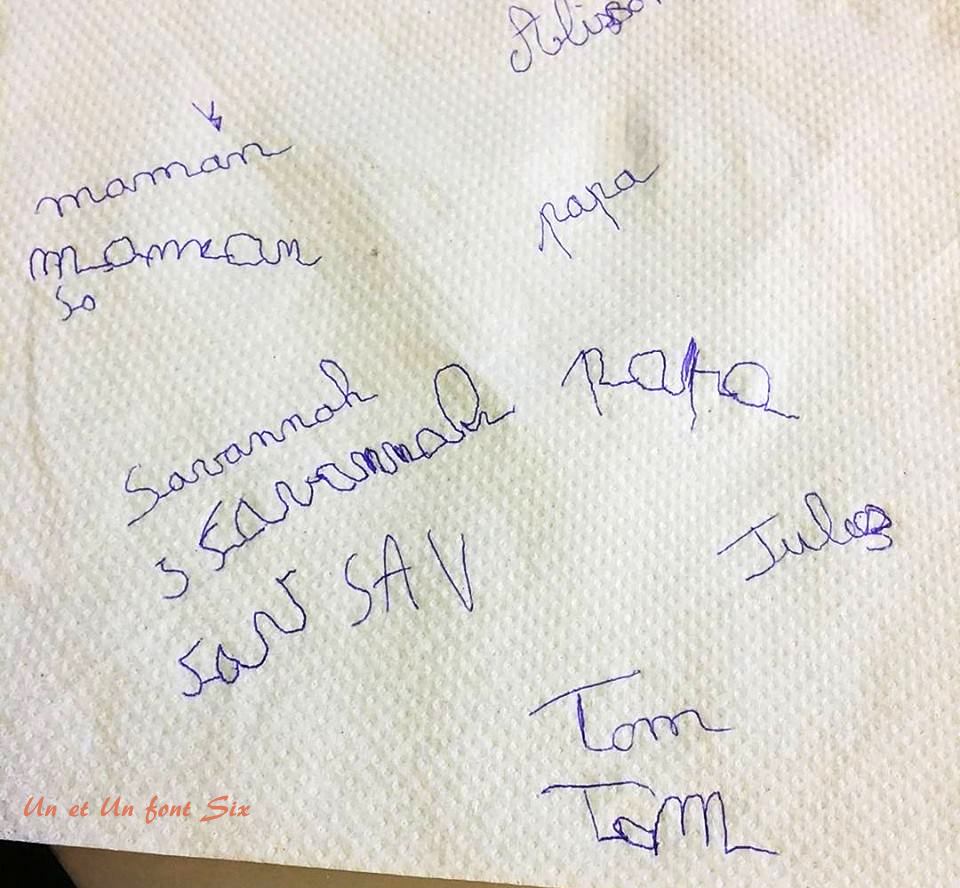 maman
maman
so
papa
papa
Savannah
s savannah
sav SAV
Jules
Tom
Tom
Un et Un font Six